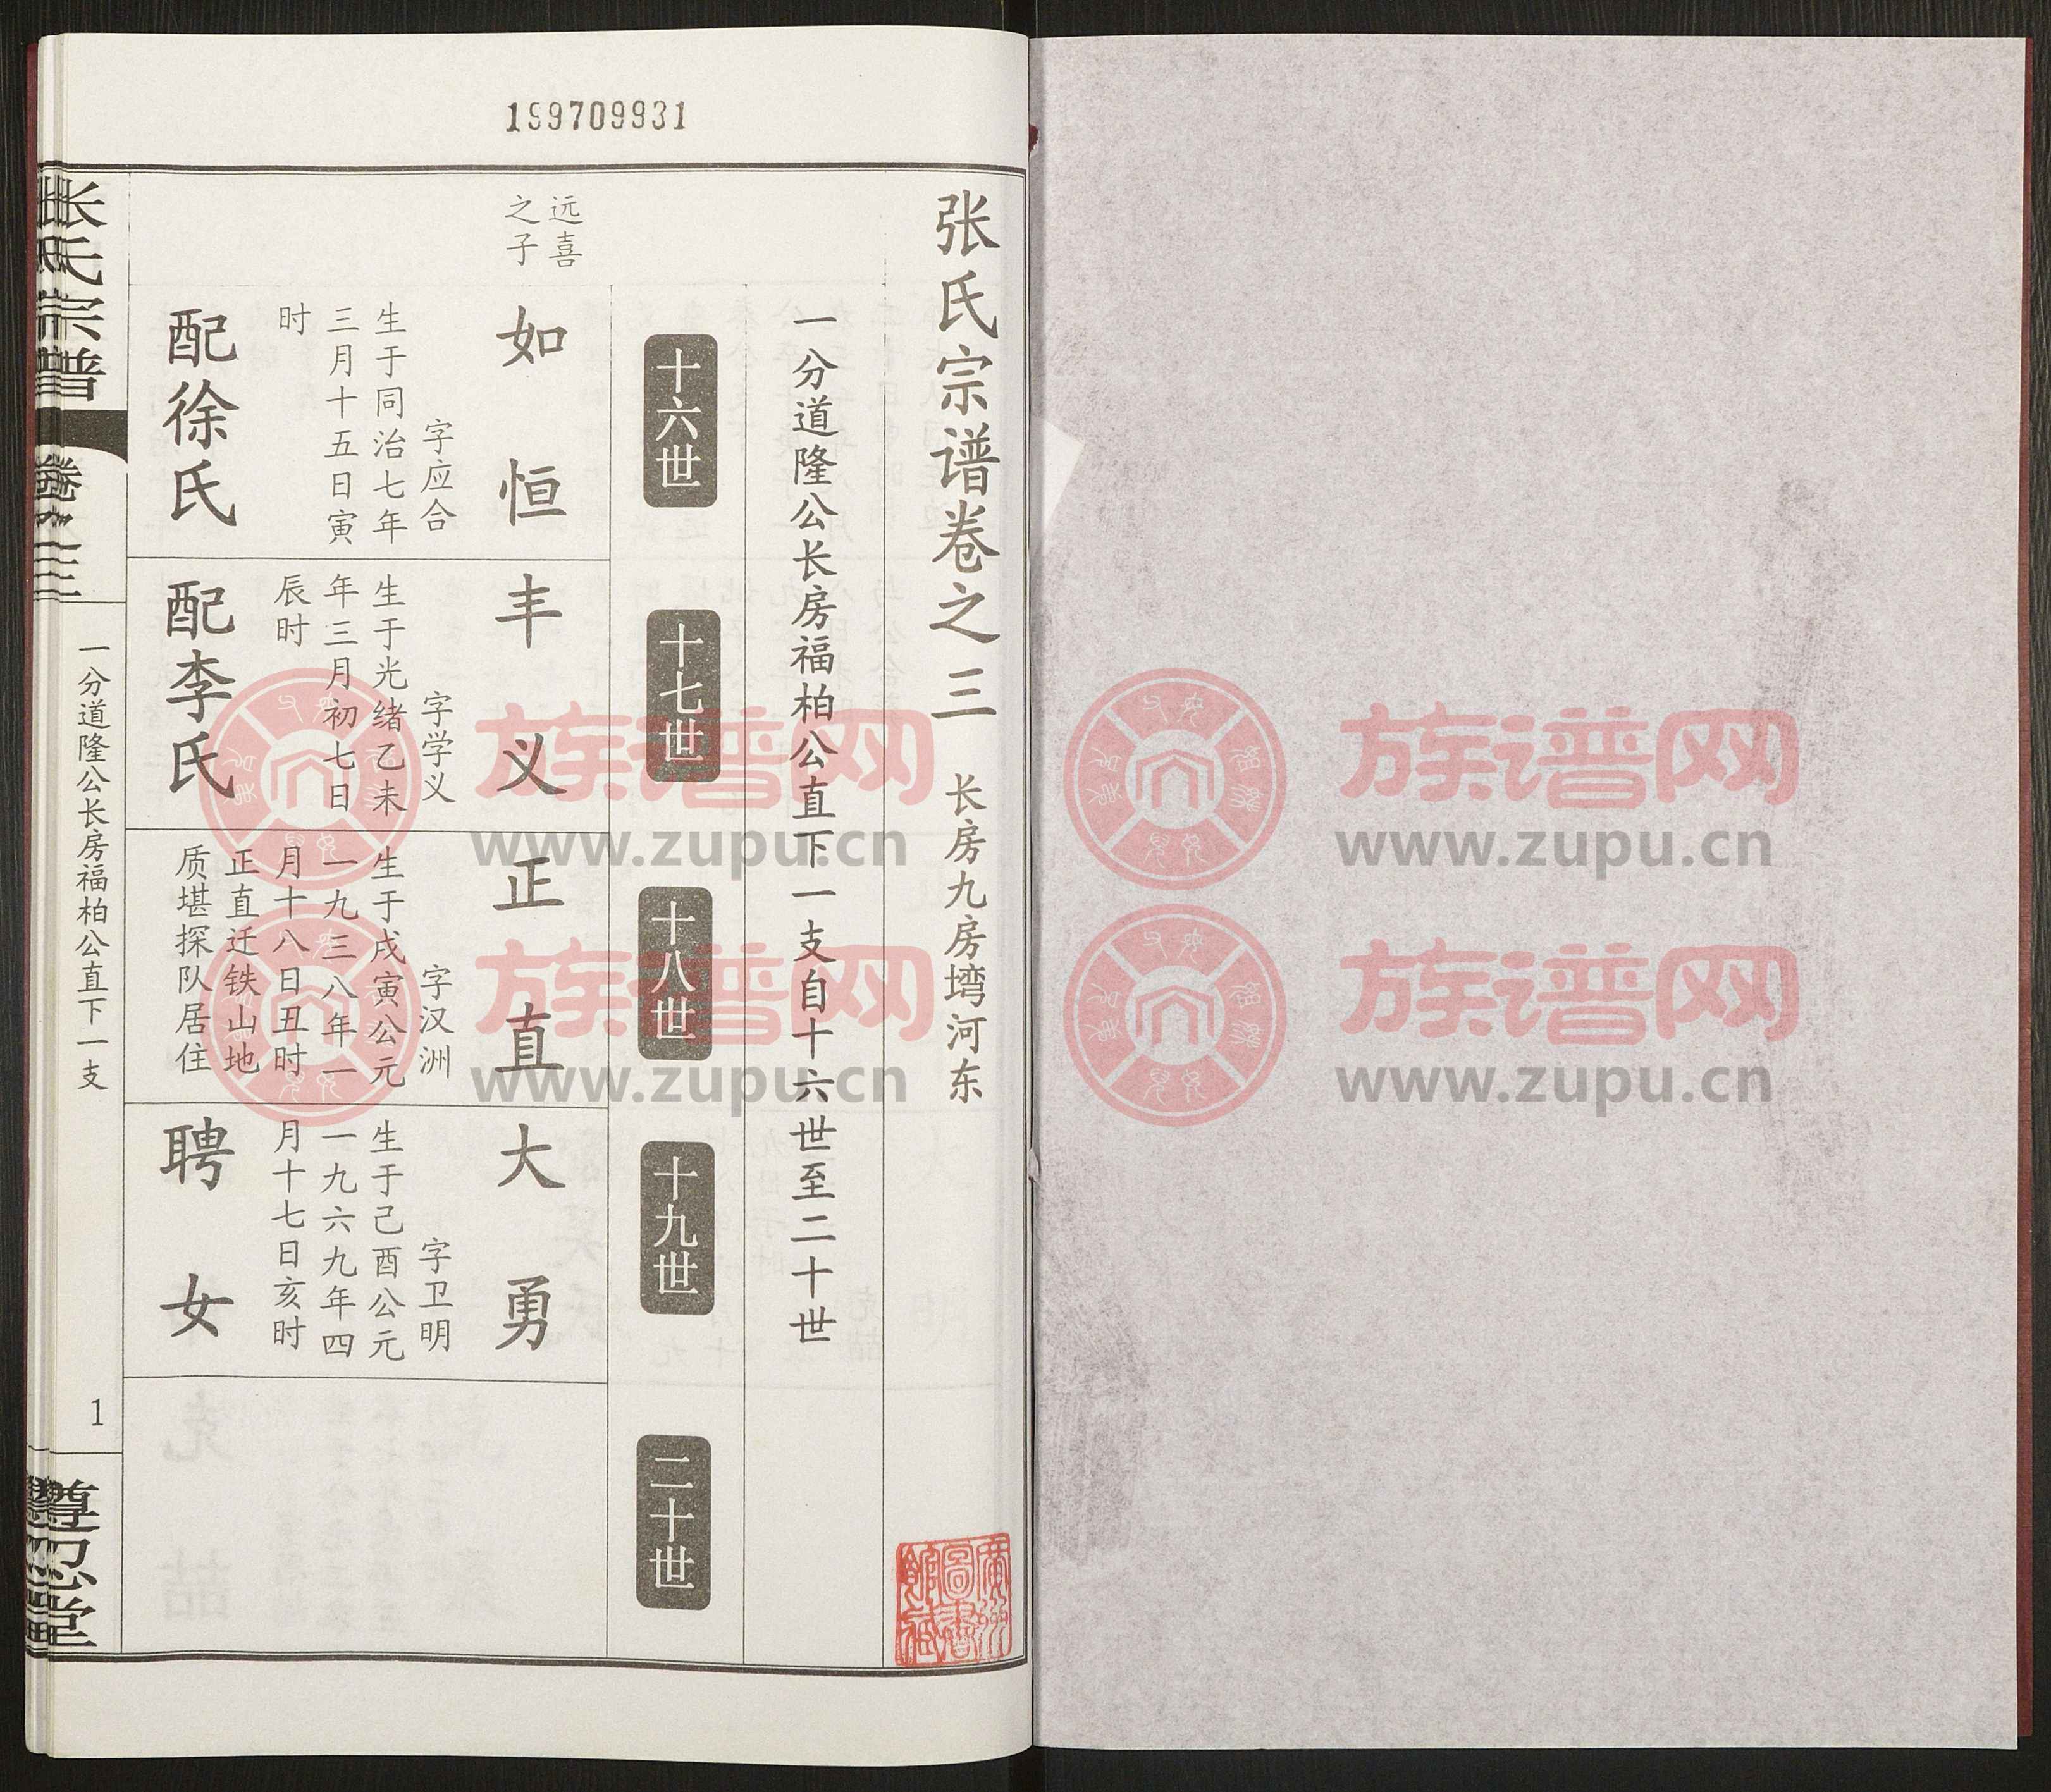 159709931
张氏宗谱卷之三 长房九房塆河东
一分道隆公长房福柏公直下一支自十六世至二十世
十六世
十七世
十八世
十九世
二十世
远喜
之子
如恒
字应合
生于同治七年
三月十五日寅
时
配徐氏
丰义
字学义
生于光绪乙未
年三月初七日
辰时
配李氏
正直
字汉洲
生于戌寅公元
一九三八年一
月十八日丑时
正直迁铁山地
质堪探队居住
大勇
字卫明
生于己酉公元
一九六九年四
月十七日亥时
聘女
张氏宗谱
卷之三
一分道隆公长房福柏公直下一支
1
尊忍堂
廣州
圖書
館藏
族谱网
www.zupu.cn
族谱网
www.zupu.cn
族谱网
www.zupu.cn
族谱网
www.zupu.cn